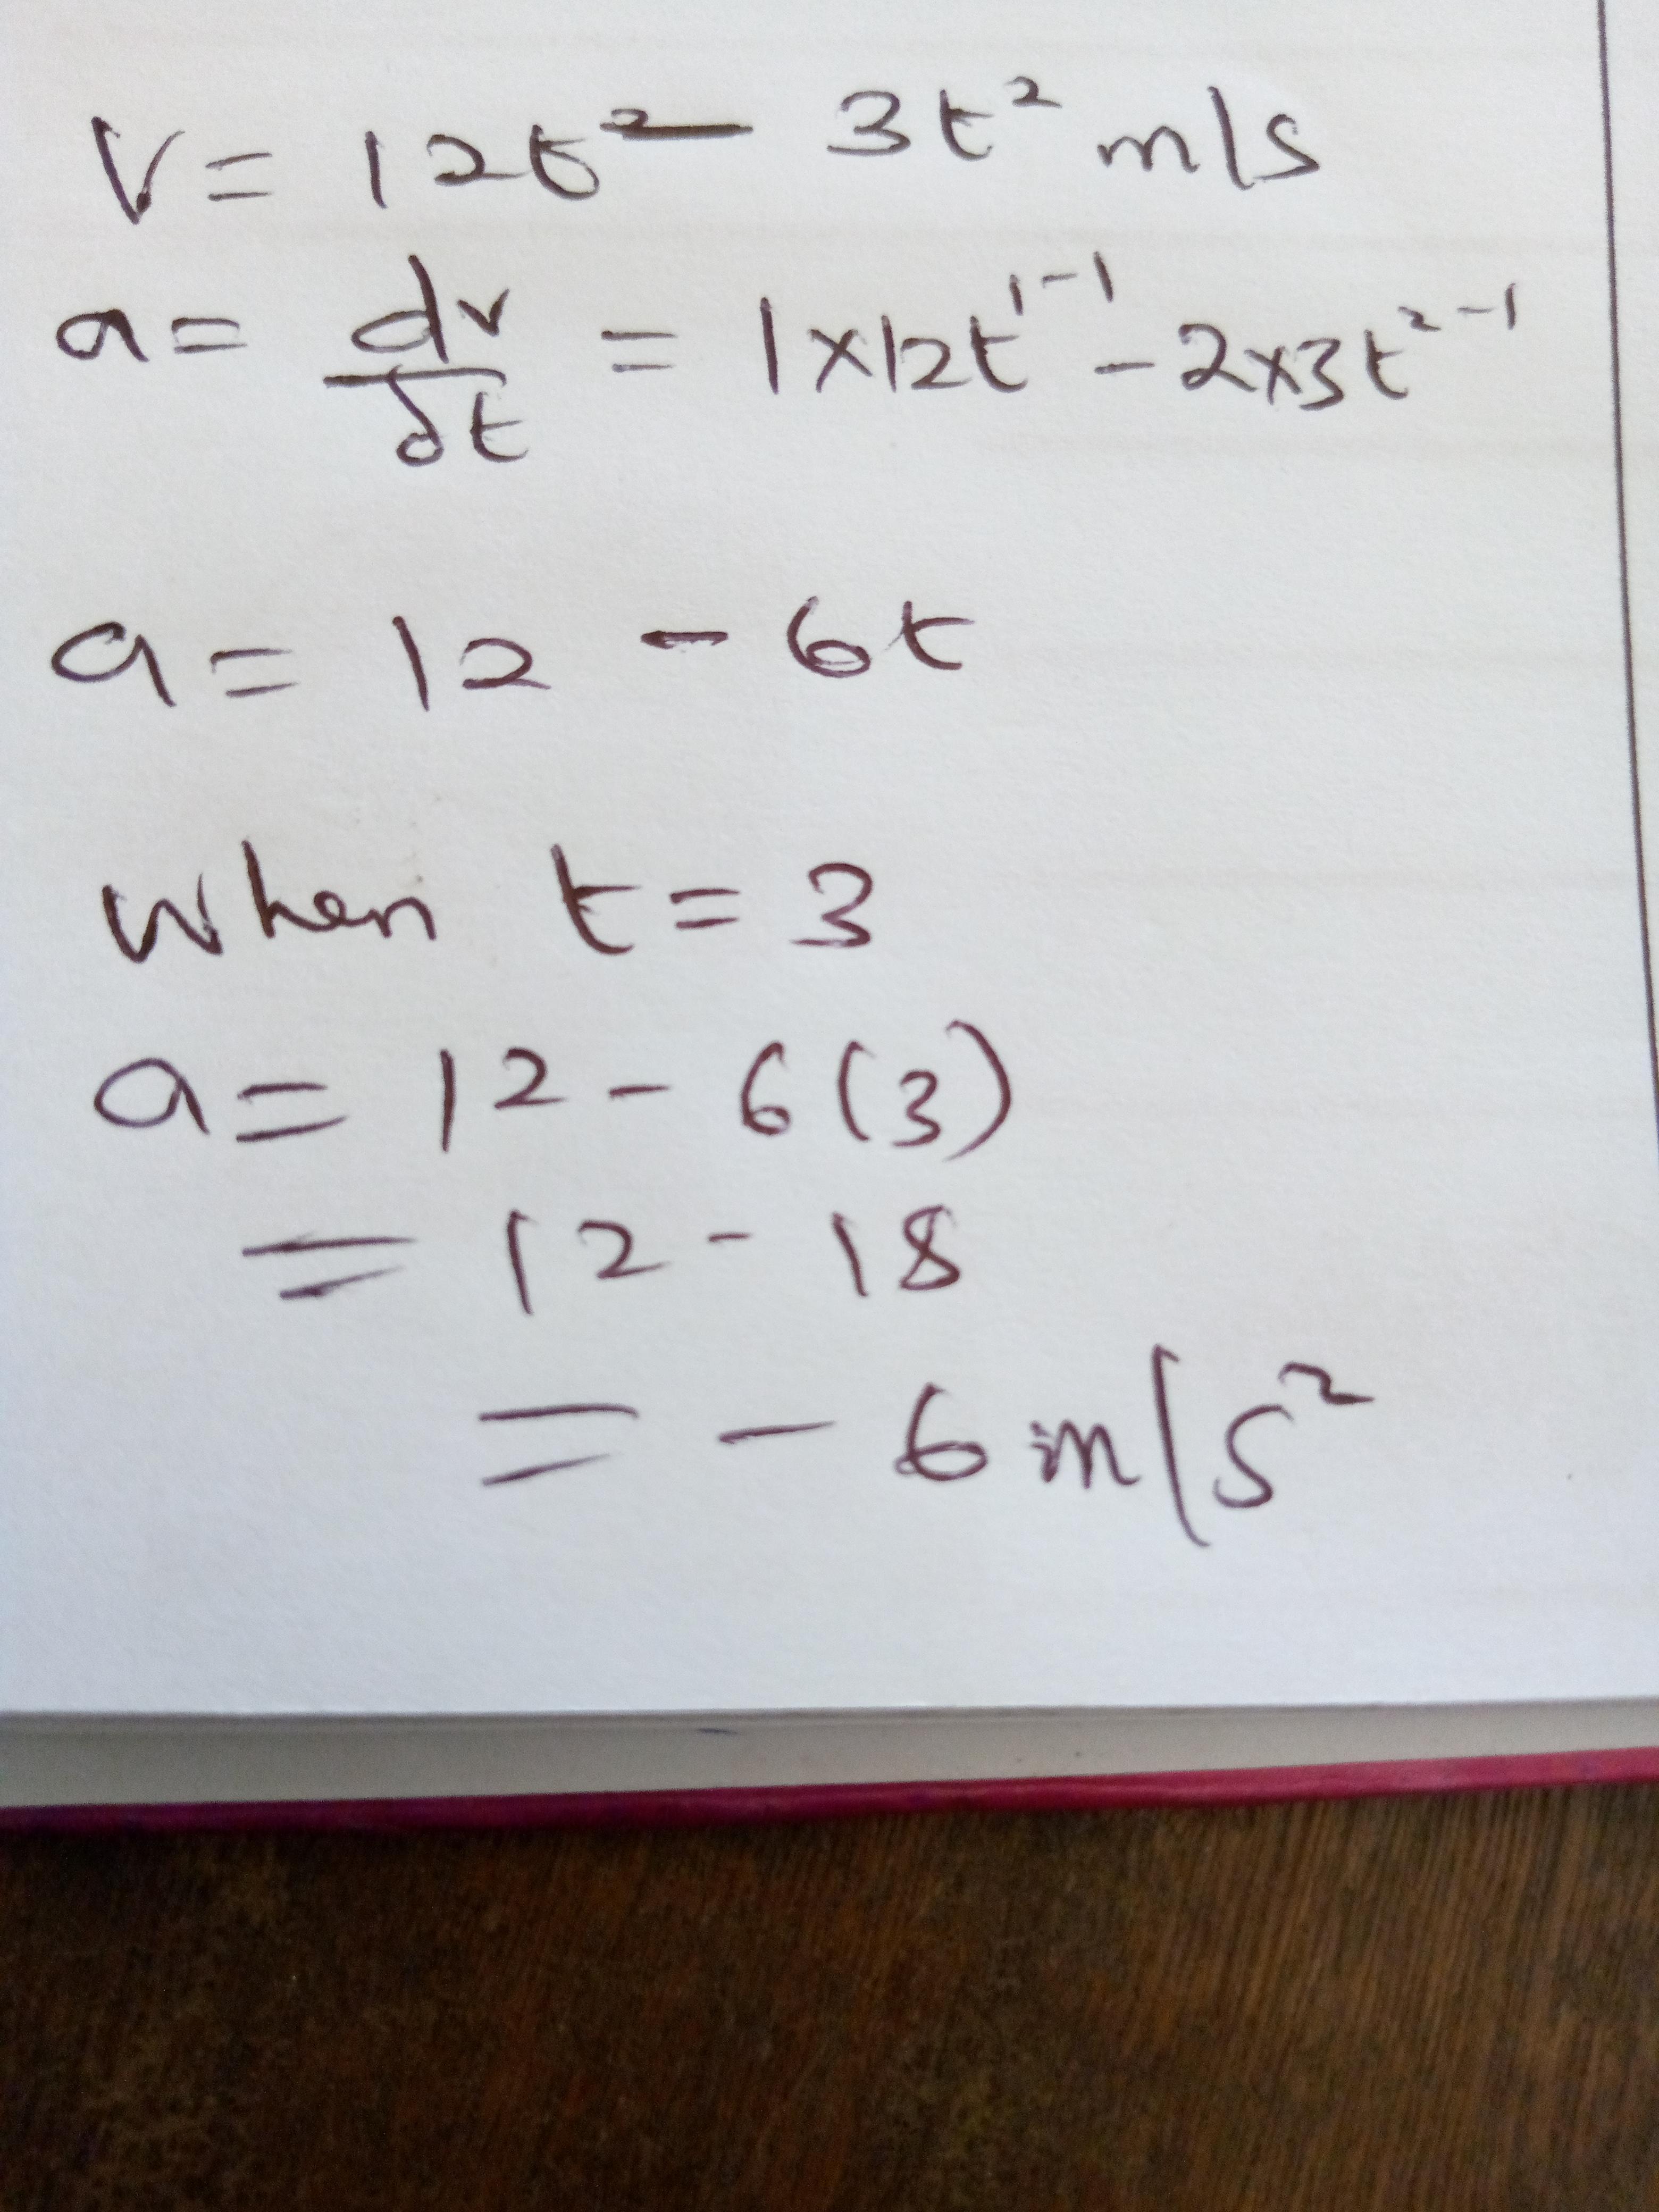 V = 12t² - 3t² m/s
a = dv/dt = 1×12t¹⁻¹ - 2×3t²⁻¹
a = 12 - 6t
when t = 3
a = 12 - 6(3)
= 12 - 18
= - 6 m/s²